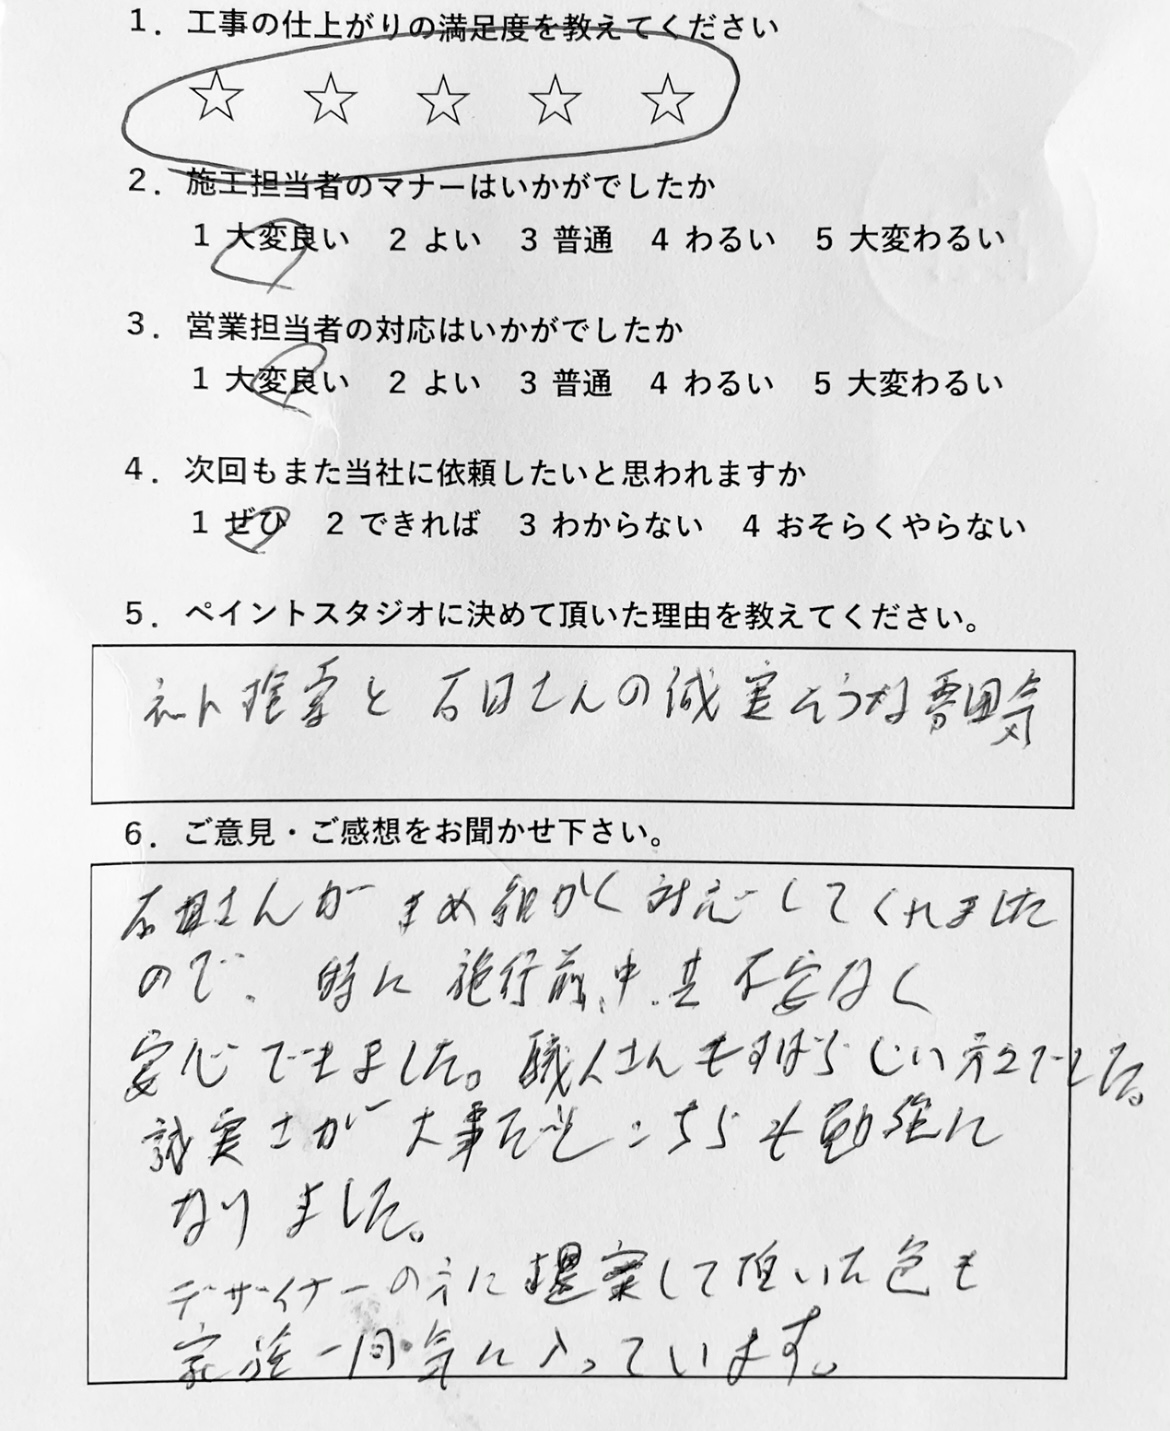 1. 工事の仕上がりの満足度を教えてください
☆ ☆ ☆ ☆ ☆
2. 施工担当者のマナーはいかがでしたか
1 大変良い 2 よい 3 普通 4 わるい 5 大変わるい
3. 営業担当者の対応はいかがでしたか
1 大変良い 2 よい 3 普通 4 わるい 5 大変わるい
4. 次回もまた当社に依頼したいと思われますか
1 ぜひ 2 できれば 3 わからない 4 おそらくやらない
5. ペイントスタジオに決めて頂いた理由を教えてください。
ネット検索と さんの誠実そうな雰囲気
6. ご意見・ご感想をお聞かせ下さい。
さんがきめ細かく対応してくれました
ので、時に施行前、中、共不安なく
安心できました。職人さんもすばらしい方々でした。
誠実さが大事だとこちらも勉強に
なりました。
デザイナーの方に提案して頂いた色も
家族一同気に入っています。